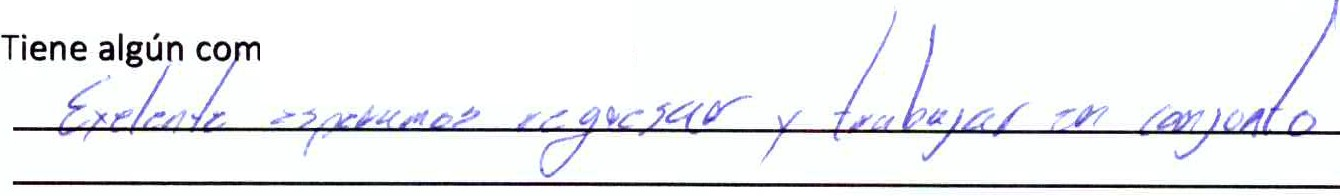 Tiene algún com
Exelente esperamos regresar y trabajar en conjunto